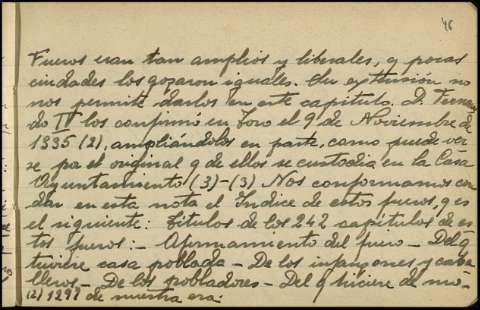 46
Fueros eran tan amplios y liberales, q pocas
ciudades los gozaron iguales. Su extensión no
nos permite darlos en este capítulo. D. Fernan
do IV los confirmó en Toro el 9 de Noviembre de
1335 (2), ampliándolos en parte, como puede ver
se por el original q de ellos se custodia en la Casa
Ayuntamiento (3)-(3) Nos conformamos con
dar en esta nota el Indice de estos fueros, q es
el siguiente: Titulos de los 242 capítulos de es
tos fueros:- Afirmamiento del fuero - Del q
tuviere casa poblada - De los infanzones y caba
lleros - De los pobladores - Del q hiciere de mó-
(2) 1297 de nuestra era: